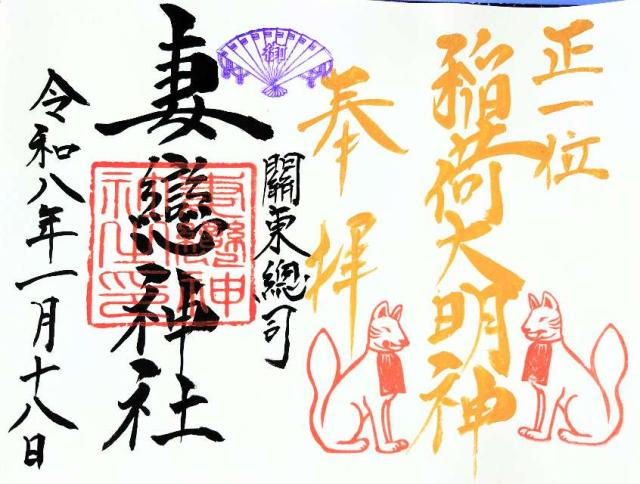 正一位
稲荷大明神
奉拝
關東總司
妻戀神社
令和八年一月十八日